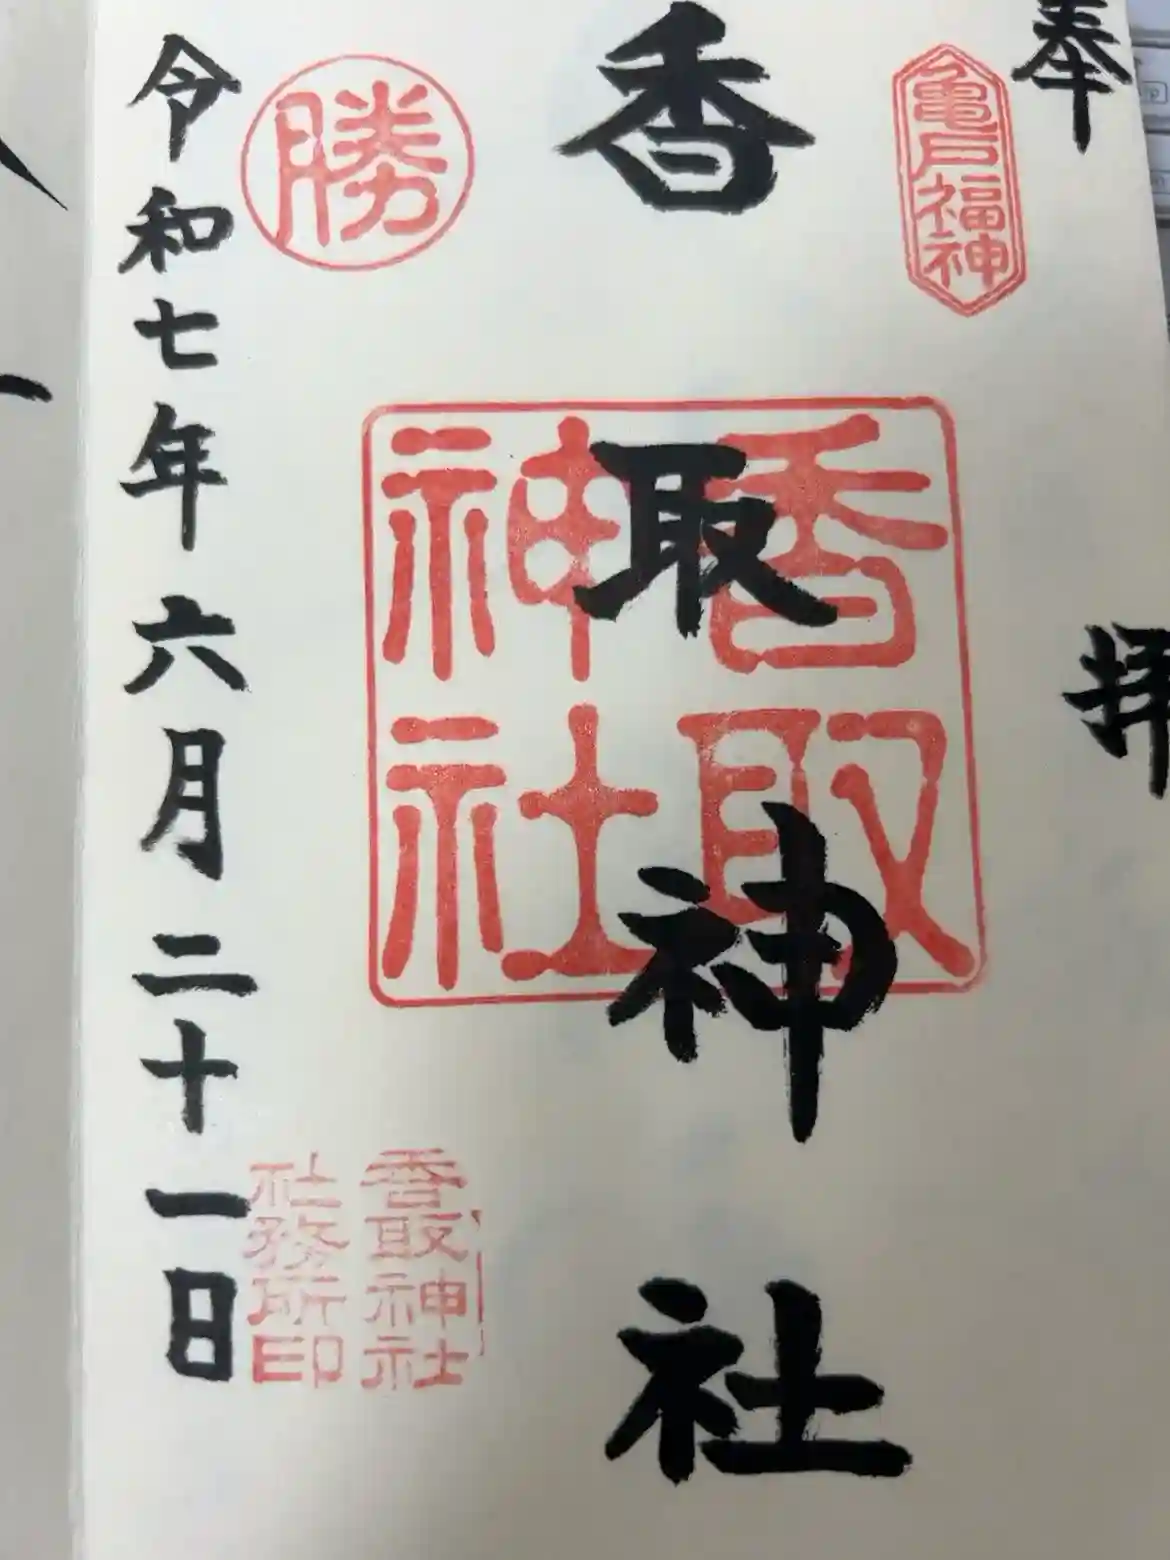 奉拝
亀戸福神
香取神社
香取神社
勝
香取神社
社務所印
令和七年六月二十一日